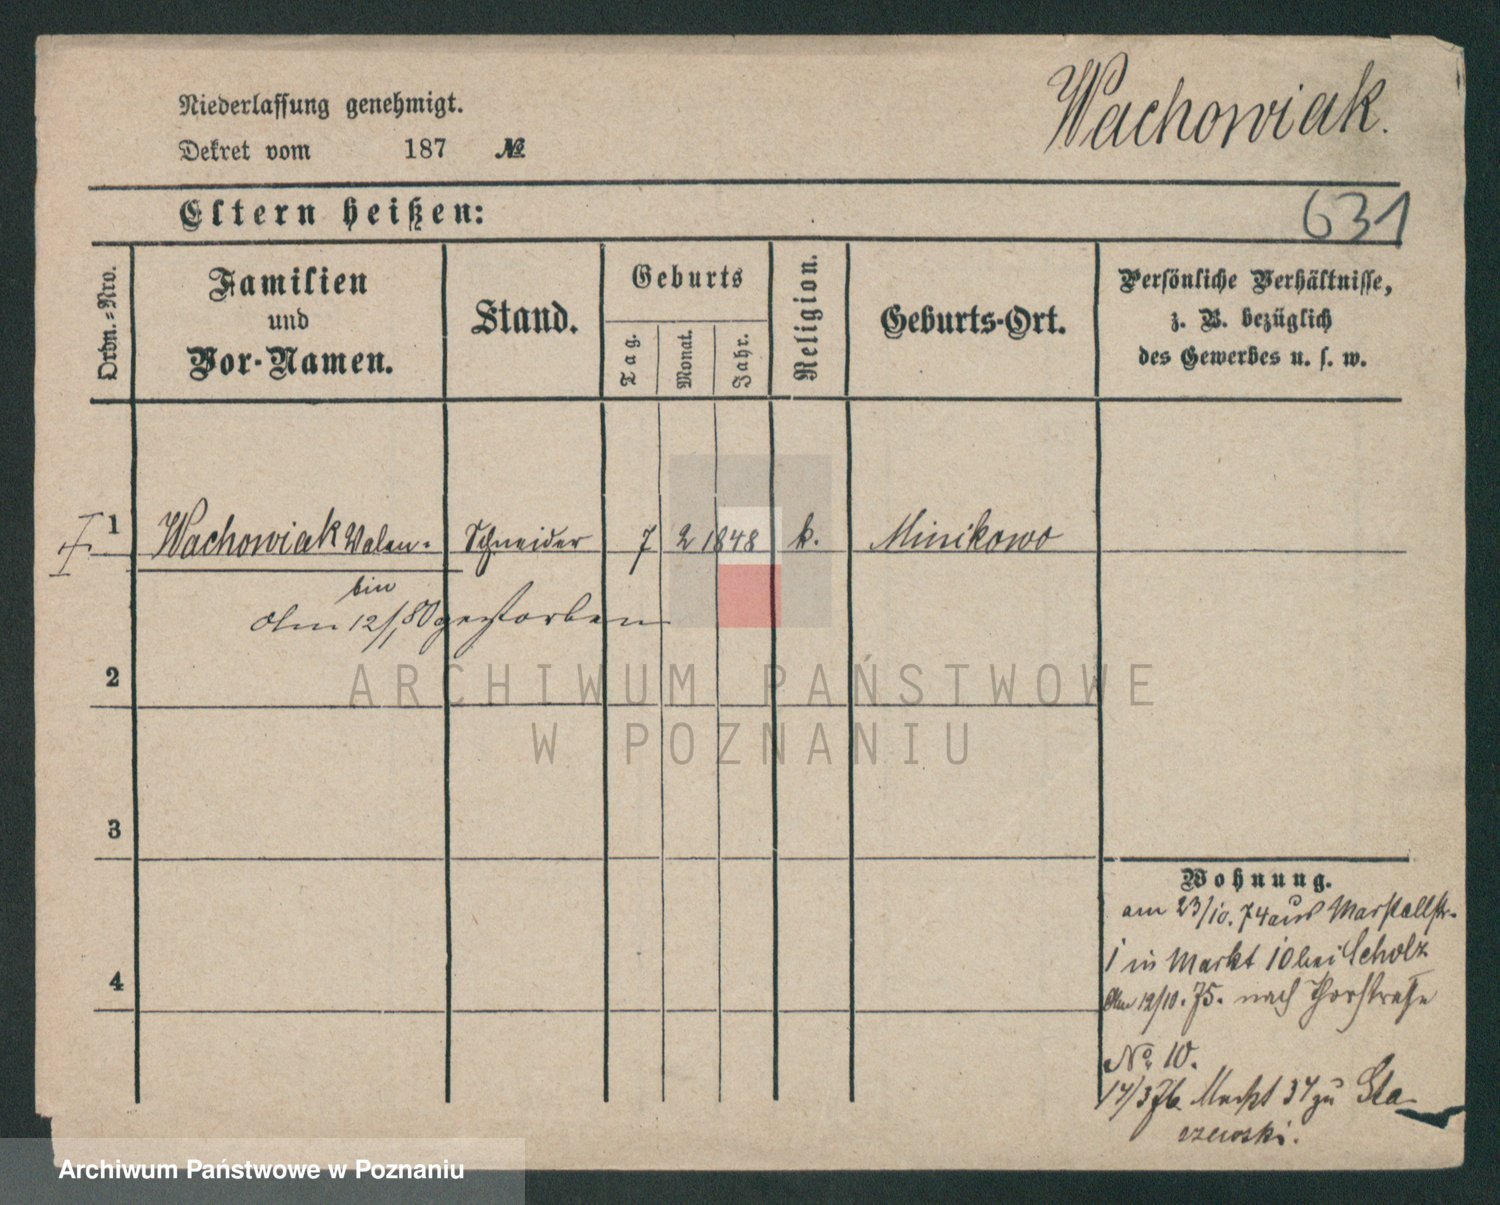 Niederlassung genehmigt.
Wachowiak.
Dekret vom 187 №
Eltern heißen:
631
Ordn.-Nro.
Familien
und
Vor-Namen.
Stand.
Geburts
Tag.
Monat.
Jahr.
Religion.
Geburts-Ort.
Persönliche Verhältnisse,
z. B. bezüglich
des Gewerbes u. s. w.
1 Wachowiak Valen- Schneider 7 2 1848 k. Minikowo
tin
Am 12/1 80 gestorben
2
ARCHIWUM PAŃSTWOWE
W POZNANIU
3
Wohnung.
am 23/10. 74 aus Marstallstr.
1 in Markt 10 bei Scholz
4
Am 12/10. 75. nach Thorstraße
No 10.
17/3 76 Markt 37 zu Sta-
szewski.
Archiwum Państwowe w Poznaniu